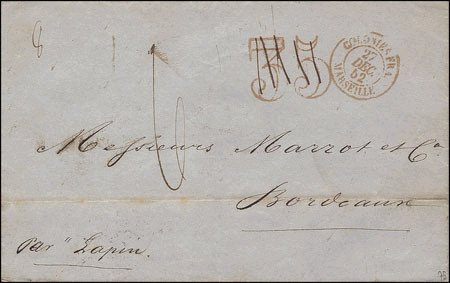 8
35
COLONIES FR.
27
DEC.
62
MARSEILLE
Messieurs Marrot et Co
Bordeaux
par "Lapin"